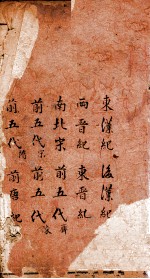 東漢紀　後漢紀
西晉紀　東晉紀
南北宋　前五代齊
前五代梁　前五代
前五代隋　前唐紀